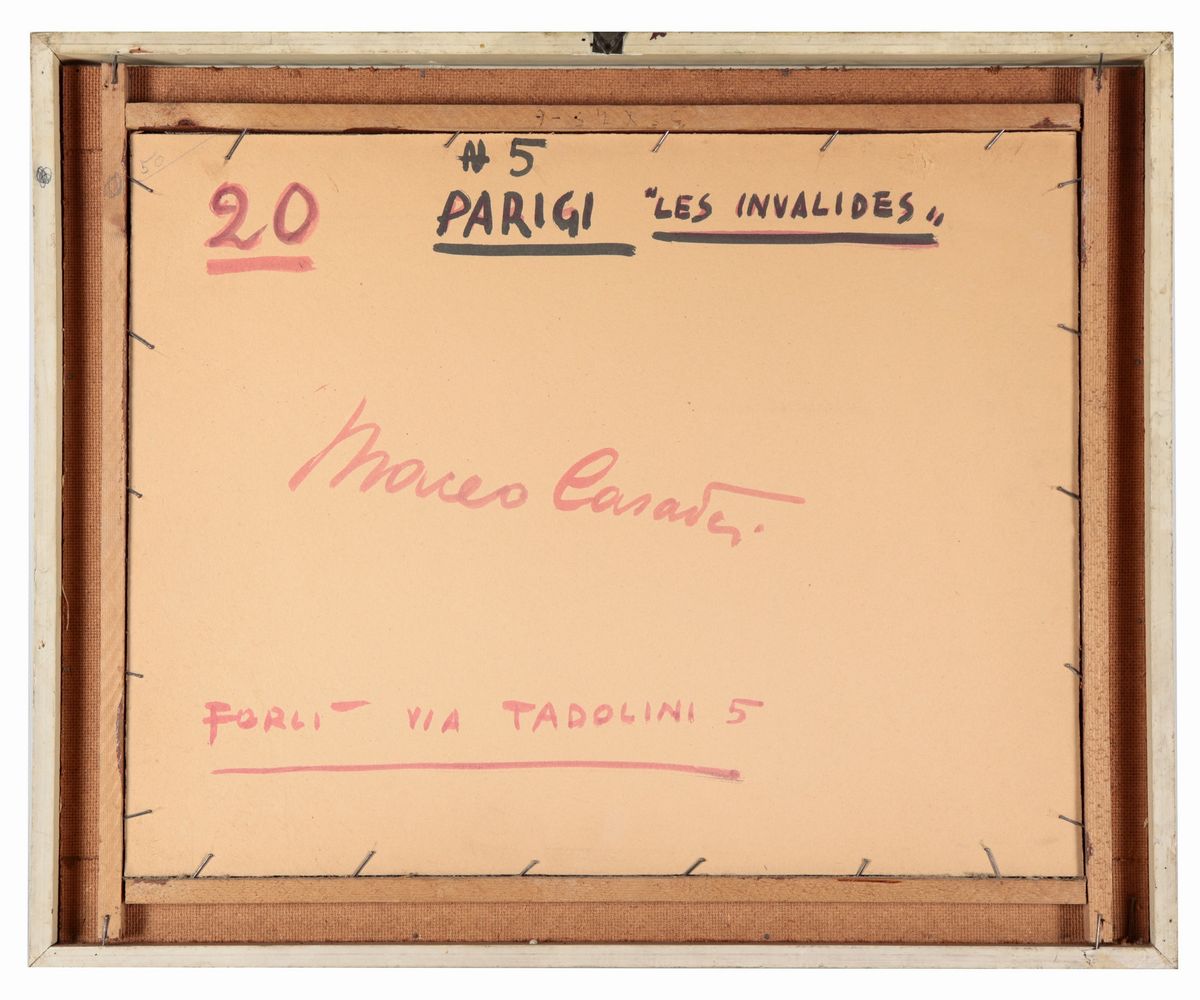 50
# 5
20 PARIGI "LES INVALIDES"
Maceo Casadei
FORLI - VIA TADOLINI 5